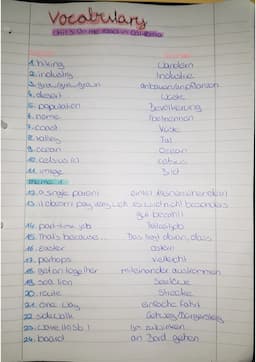 Vocabulary
Unit 3: On the road in California
1. hiking Wandern
2. industry Industrie
3. grow/grew/grown anbauen/anpflanzen
4. desert Wüste
5. population Bevölkerung
6. name
7. coast Küste
8. valley Tal
9. ocean Ozean
10. celsius (c) Celsius
11. image Bild
12. a single parent
13. it doesn't pay very well es wird nicht besonders
gut bezahlt
14. part-time job Teilzeitjob
15. That's because... Das liegt daran, dass
16. easter ostern
17. perhaps vielleicht
18. get on together miteinander auskommen
19. sea lion Seelöwe
20. route Strecke
21. one way einfache Fahrt
22. sidewalk Gehweg/Bürgersteig
23. wave
24. board an Bord gehen